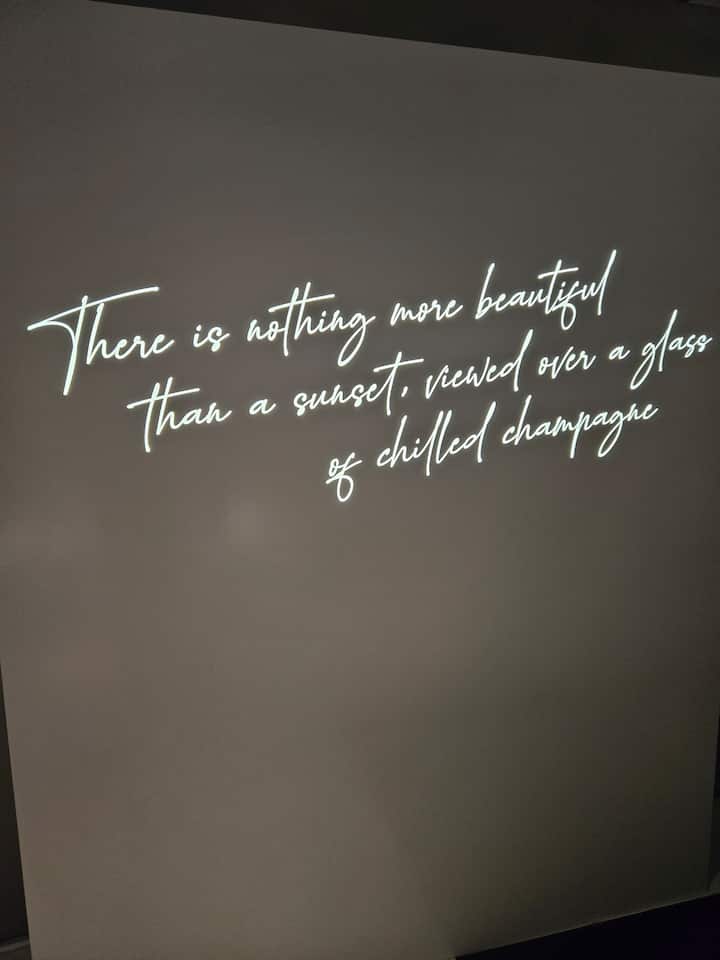 There is nothing more beautiful
than a sunset, viewed over a glass
of chilled champagne